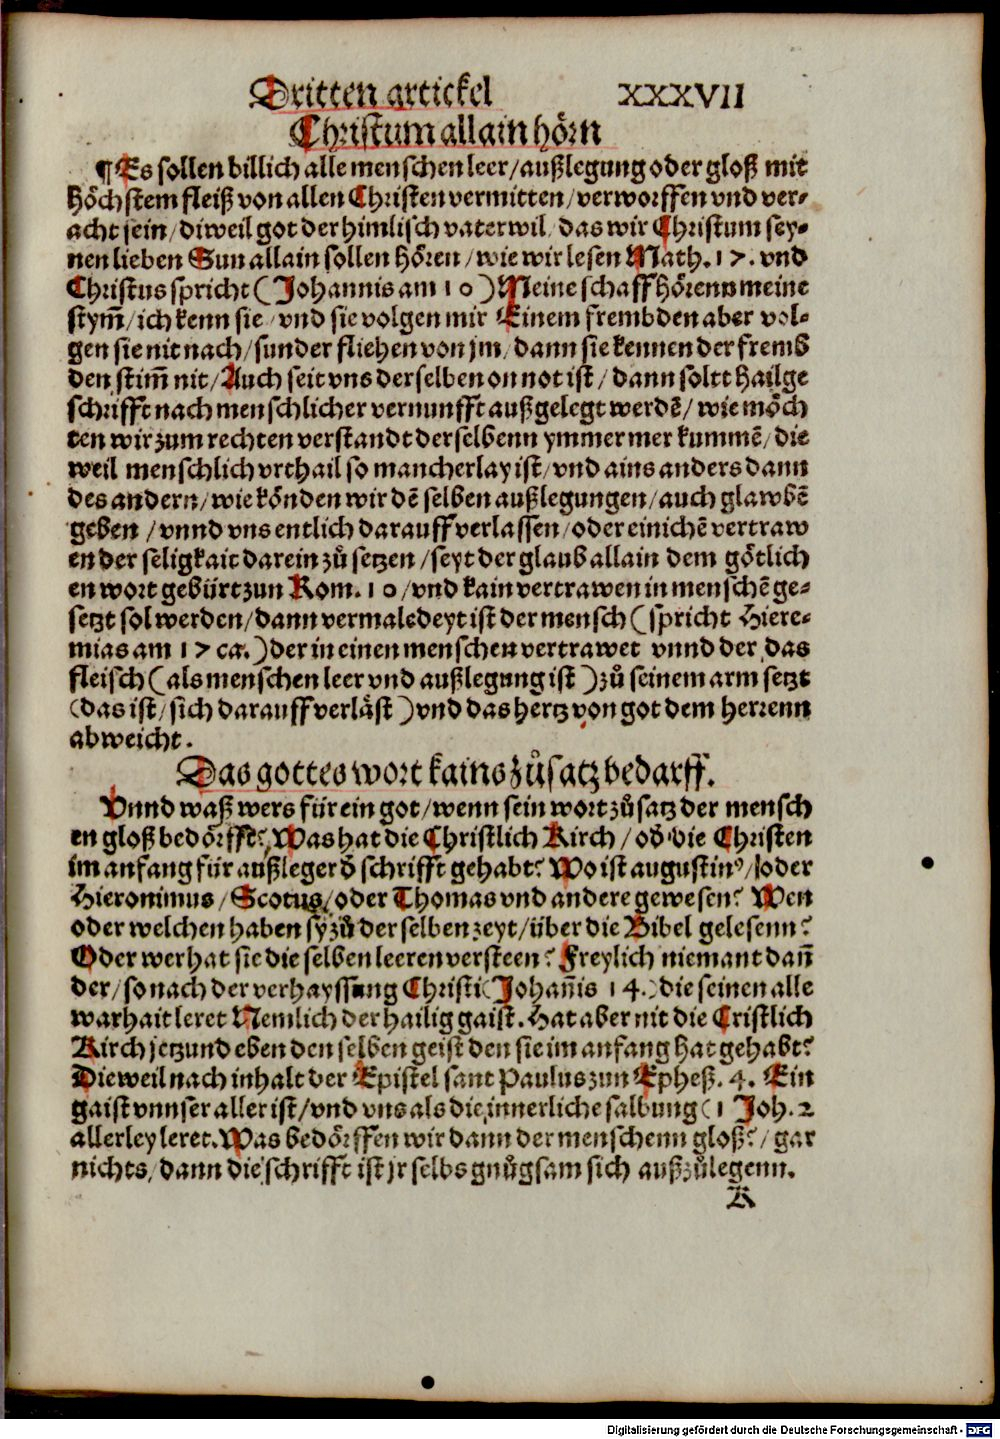 Dritten artickel XXXVII
Christum allain hörn
¶ Es sollen billich alle menschen leer/außlegung oder gloß mit
höchstem fleiß von allen Christen vermitten/verworffen vnd ver-
acht sein/diweil got der himlisch vater wil/das wir Christum sey-
nen lieben Sun allain sollen hören/wie wir lesen Math. 17. vnd
Christus spricht (Johannis am 10) Meine schaff hörenn meine
stym̄/ich kenn sie/vnd sie volgen mir Einem frembden aber vol-
gen sie nit nach/sunder fliehen von jm/dann sie kennen der fremb
den stim̄ nit/Auch seit vns derselben on not ist/dann soltt hailge
schrifft nach menschlicher vernunfft außgelegt werdē/wie möch
ten wir zum rechten verstandt derselbenn ymmer mer kummē/die
weil menschlich vrthail so mancherlay ist/vnd ains anders dann
des andern/wie könden wir dē selben außlegungen/auch glawbē
geben/vnnd vns entlich darauff verlassen/oder einichē vertraw
en der seligkait darein zů setzen/seyt der glaub allain dem götlich
en wort gebürt zun Rom. 10/vnd kain vertrawen in menschē ge-
setzt sol werden/dann vermaledeyt ist der mensch (spricht Hiere-
mias am 17 ca.) der in einen menschen vertrawet vnnd der das
fleisch (als menschen leer vnd außlegung ist) zů seinem arm setzt
(das ist/sich darauff verläst) vnd das hertz von got dem herrenn
abweicht.
Das gottes wort kains zůsatz bedarff.
Vnnd waß wers für ein got/wenn sein wort zůsatz der mensch
en gloß bedörfft? Was hat die Christlich Kirch/ob die Christen
im anfang für außleger d̄ schrifft gehabt? Wo ist augustinꝰ/oder
Hieronimus/Scotus/oder Thomas vnd andere gewesen? Wen
oder welchen haben sy zů der selben zeyt/über die Bibel gelesenn?
Oder wer hat sie die selben leeren versteen? Freylich niemant dan̄
der/so nach der verhayssung Christi (Johan̄is 14.) die seinen alle
warhait leret Nemlich der hailig gaist. Hat aber nit die Cristlich
Kirch jetzund eben den selben geist den sie im anfang hat gehabt?
Dieweil nach inhalt der Epistel sant Paulus zun Epheß. 4. Ein
gaist vnnser aller ist/vnd vns als die innerliche salbung (1 Joh. 2
allerley leret. Was bedörffen wir dann der menschenn gloß?/gar
nichts/dann die schrifft ist jr selbs gnůgsam sich außzůlegenn.
K
Digitalisierung gefördert durch die Deutsche Forschungsgemeinschaft - DFG